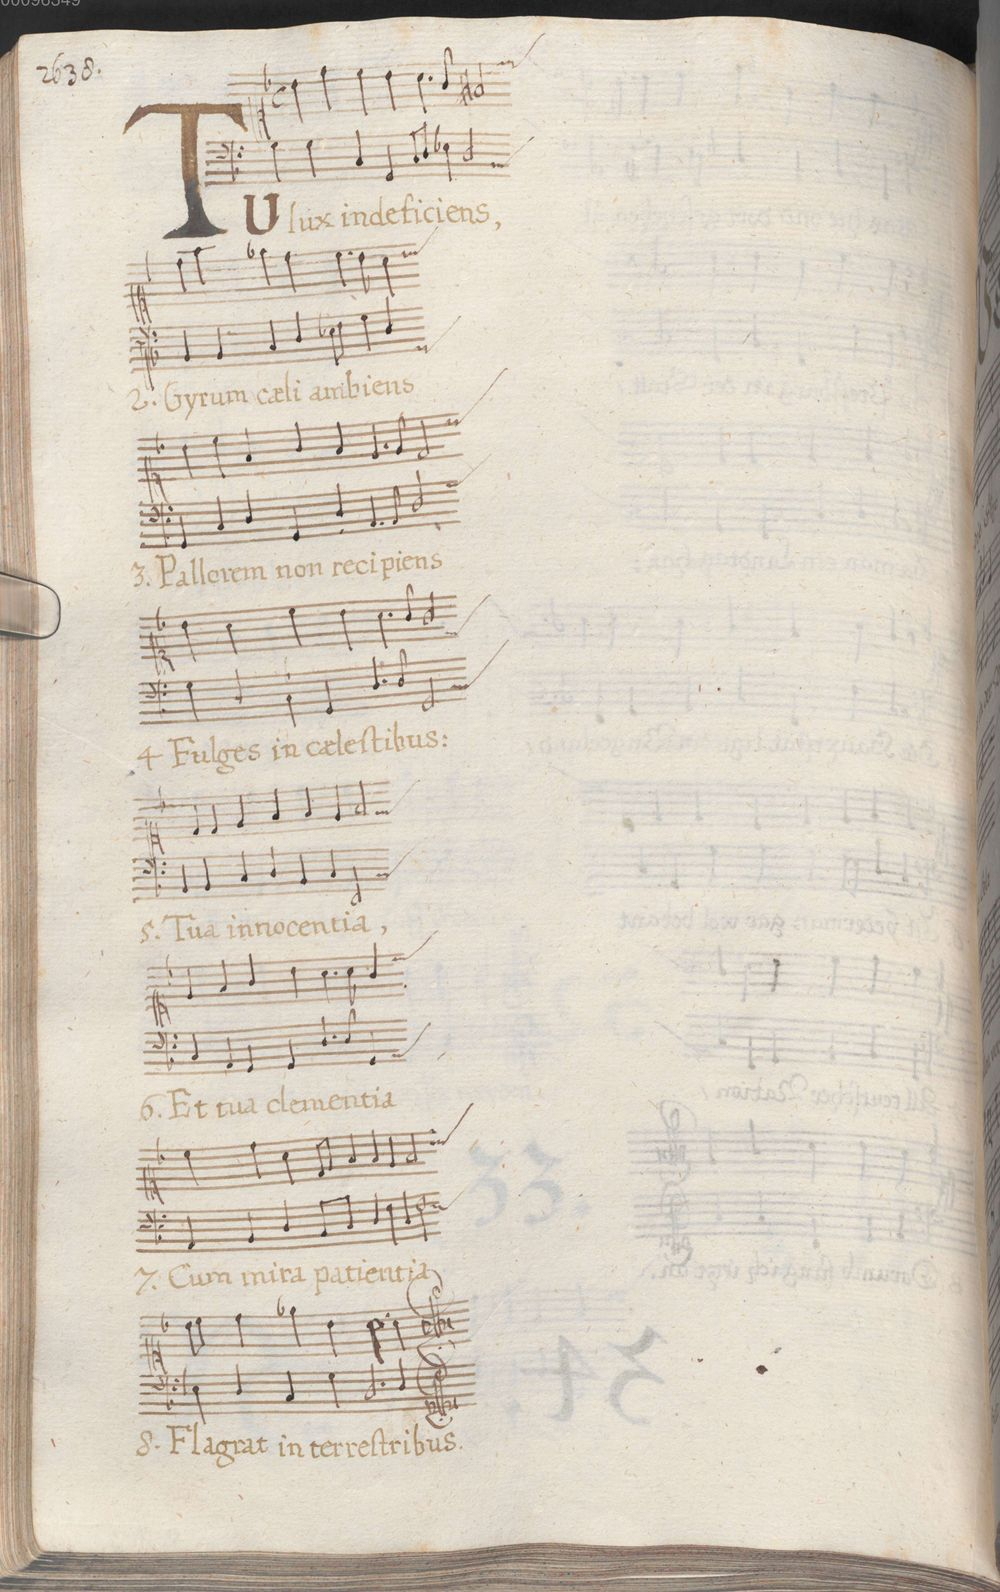 00096349
2638.
TU lux indeficiens,
2. Gyrum cæli ambiens
3. Pallorem non recipiens
4 Fulges in cæleſtibus:
5. Tua innocentia,
6. Et tua clementia
7. Cum mira patientia,
8. Flagrat in terreſtribus.